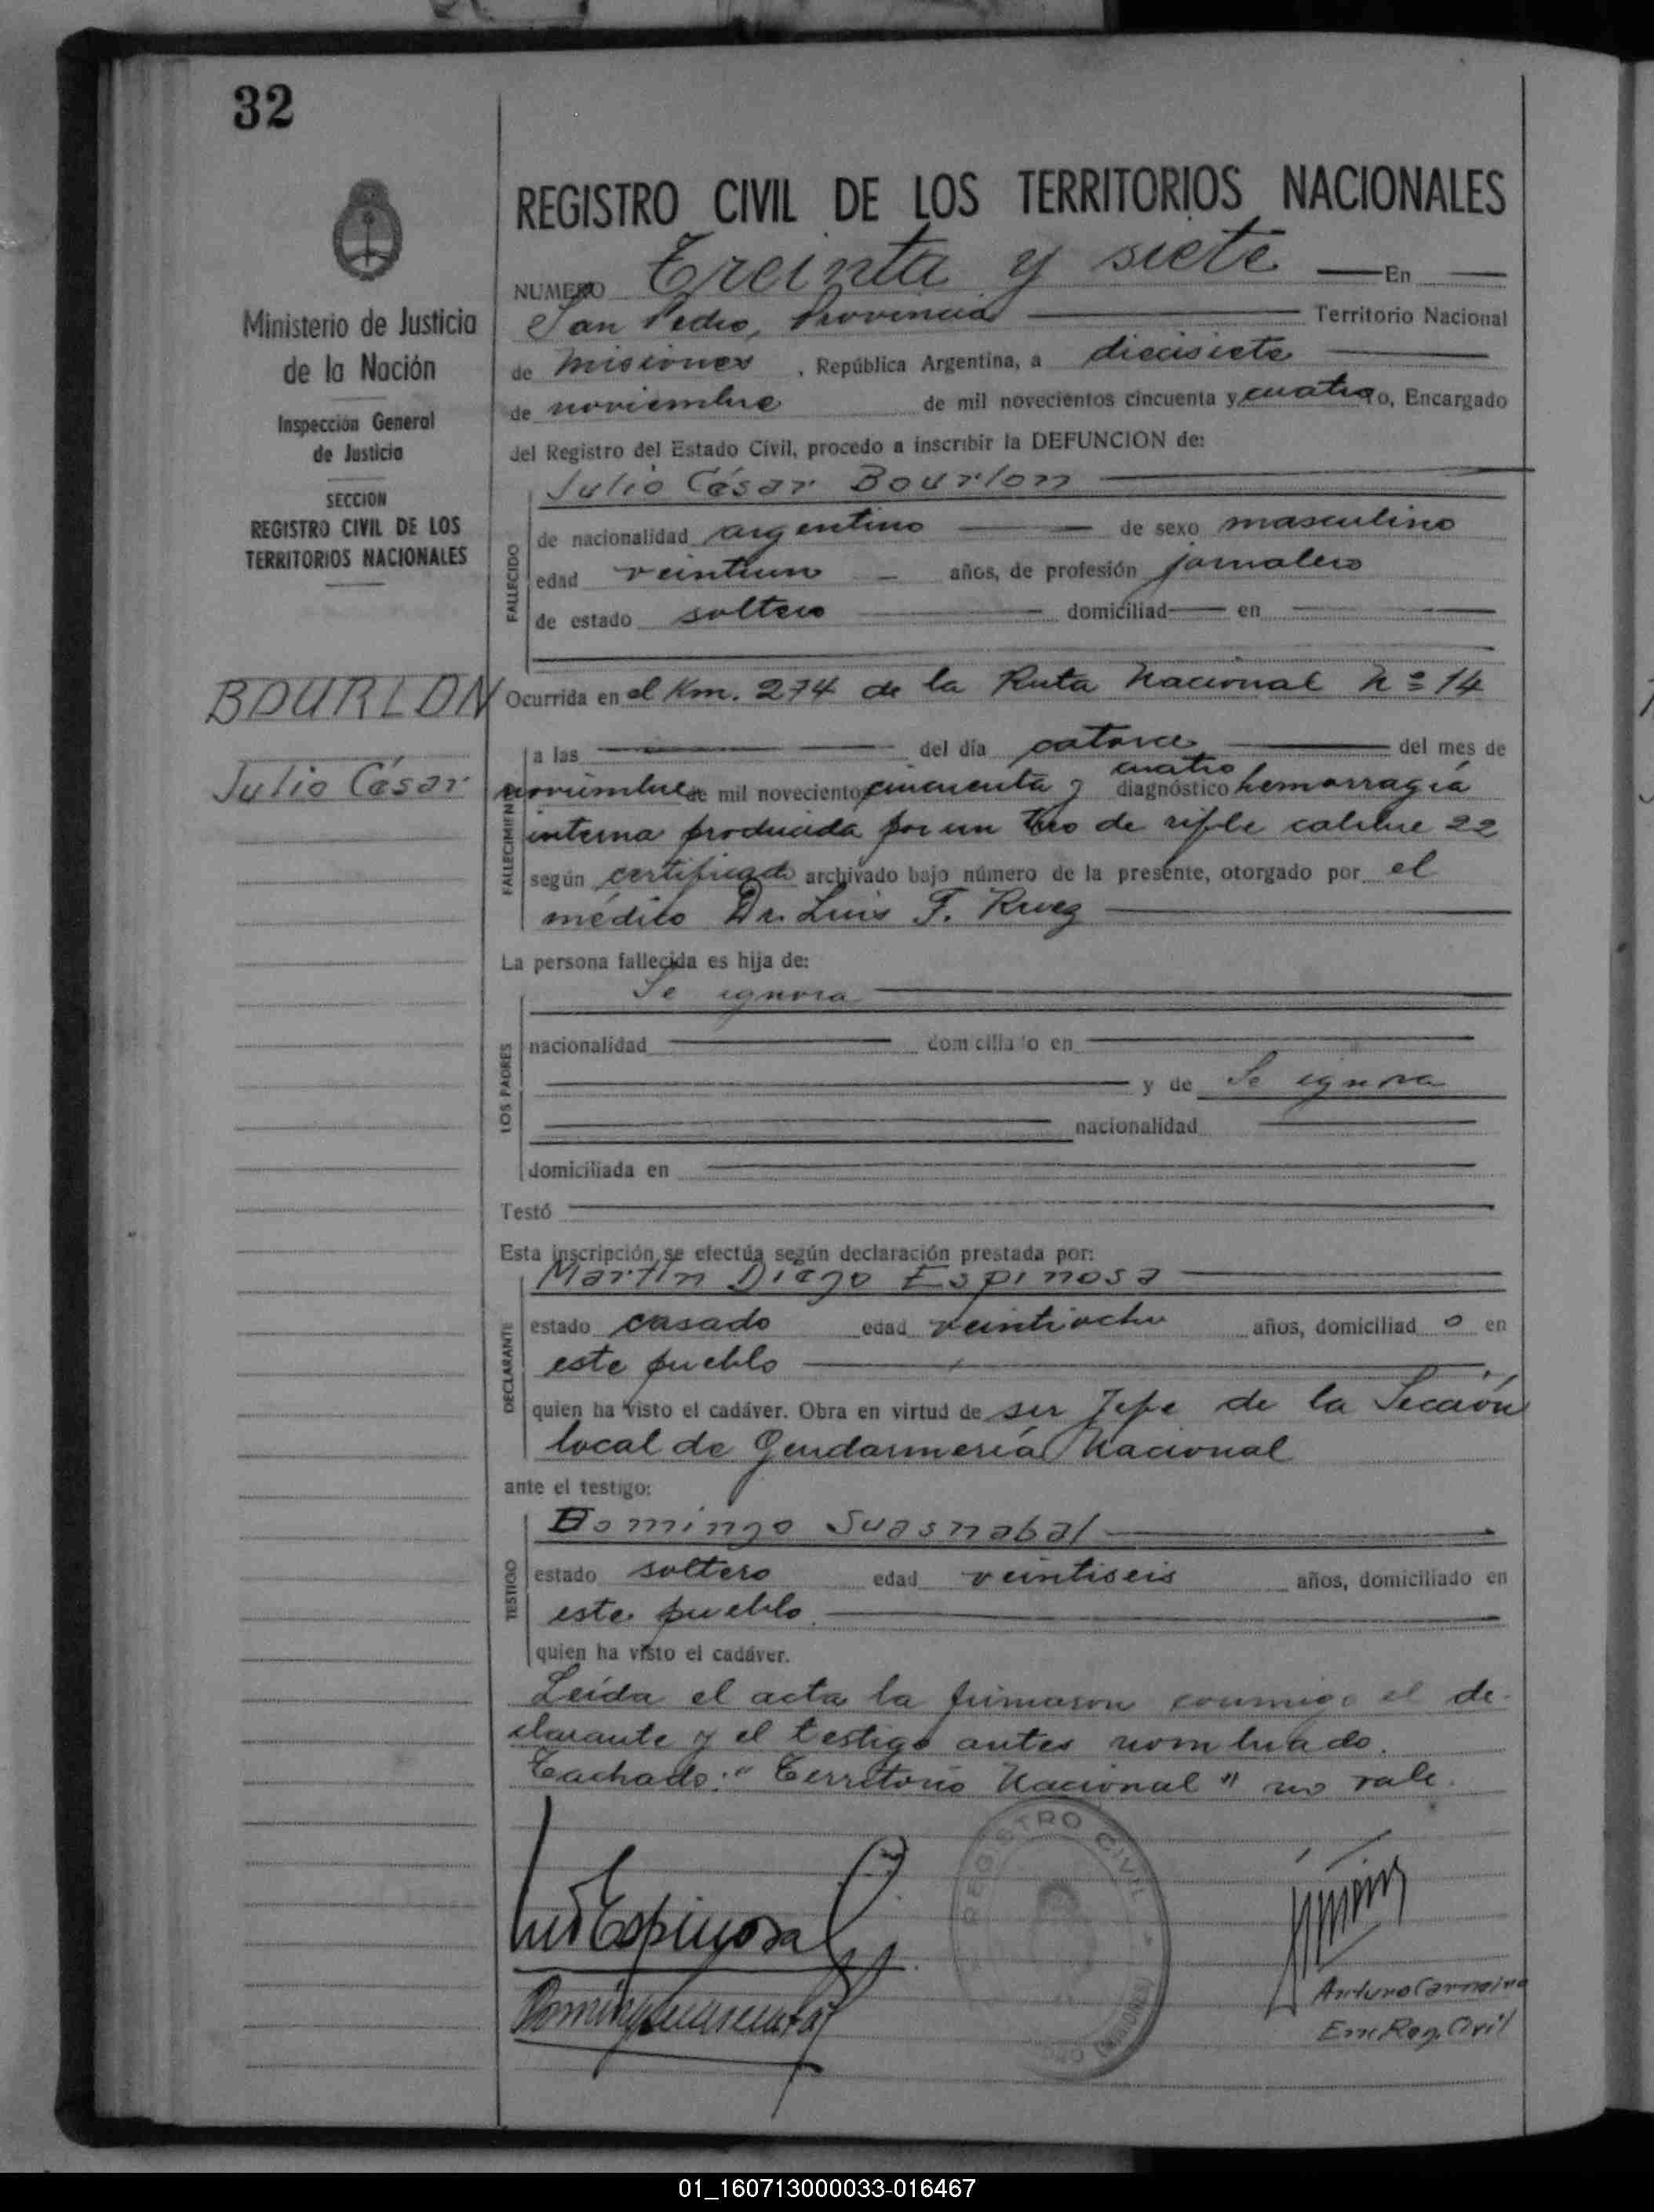 32
REGISTRO CIVIL DE LOS TERRITORIOS NACIONALES
NUMERO Treinta y siete En
San Pedro, Provincia Territorio Nacional
de Misiones, República Argentina, a diecisiete
de noviembre de mil novecientos cincuenta y cuatro, Encargado
del Registro del Estado Civil, procedo a inscribir la DEFUNCION de:
Julio César Bourlon
FALLECIDO
de nacionalidad argentino de sexo masculino
edad veintiun años, de profesión jornalero
de estado soltero domiciliad en
Ocurrida en el Km. 274 de la Ruta Nacional Nº 14
FALLECIMIENTO
a las del día catorce del mes de
noviembre de mil novecientos cincuenta y cuatro diagnóstico hemorragia
interna producida por un tiro de rifle calibre 22
según certificado archivado bajo número de la presente, otorgado por el
médico Dr. Luis F.
La persona fallecida es hija de:
LOS PADRES
Se ignora
nacionalidad domiciliado en
y de Se ignora
nacionalidad
domiciliada en
Testó
Esta inscripción se efectúa según declaración prestada por:
DECLARANTE
Martín Diego Espinosa
estado casado edad veintiocho años, domiciliad o en
este pueblo
quien ha visto el cadáver. Obra en virtud de ser Jefe de la Sección
local de Gendarmería Nacional
ante el testigo:
TESTIGO
Domingo Suasnabal
estado soltero edad veintiseis años, domiciliado en
este pueblo
quien ha visto el cadáver.
Leída el acta la firmaron conmigo el de-
clarante y el testigo antes nombrado.
Tachado: "Territorio Nacional" no vale.
Ministerio de Justicia
de la Nación
Inspección General
de Justicia
SECCION
REGISTRO CIVIL DE LOS
TERRITORIOS NACIONALES
BOURLON
Julio César
Espinosa
REGISTRO CIVIL
Arturo
Enc Reg. Civil
01_160713000033-016467